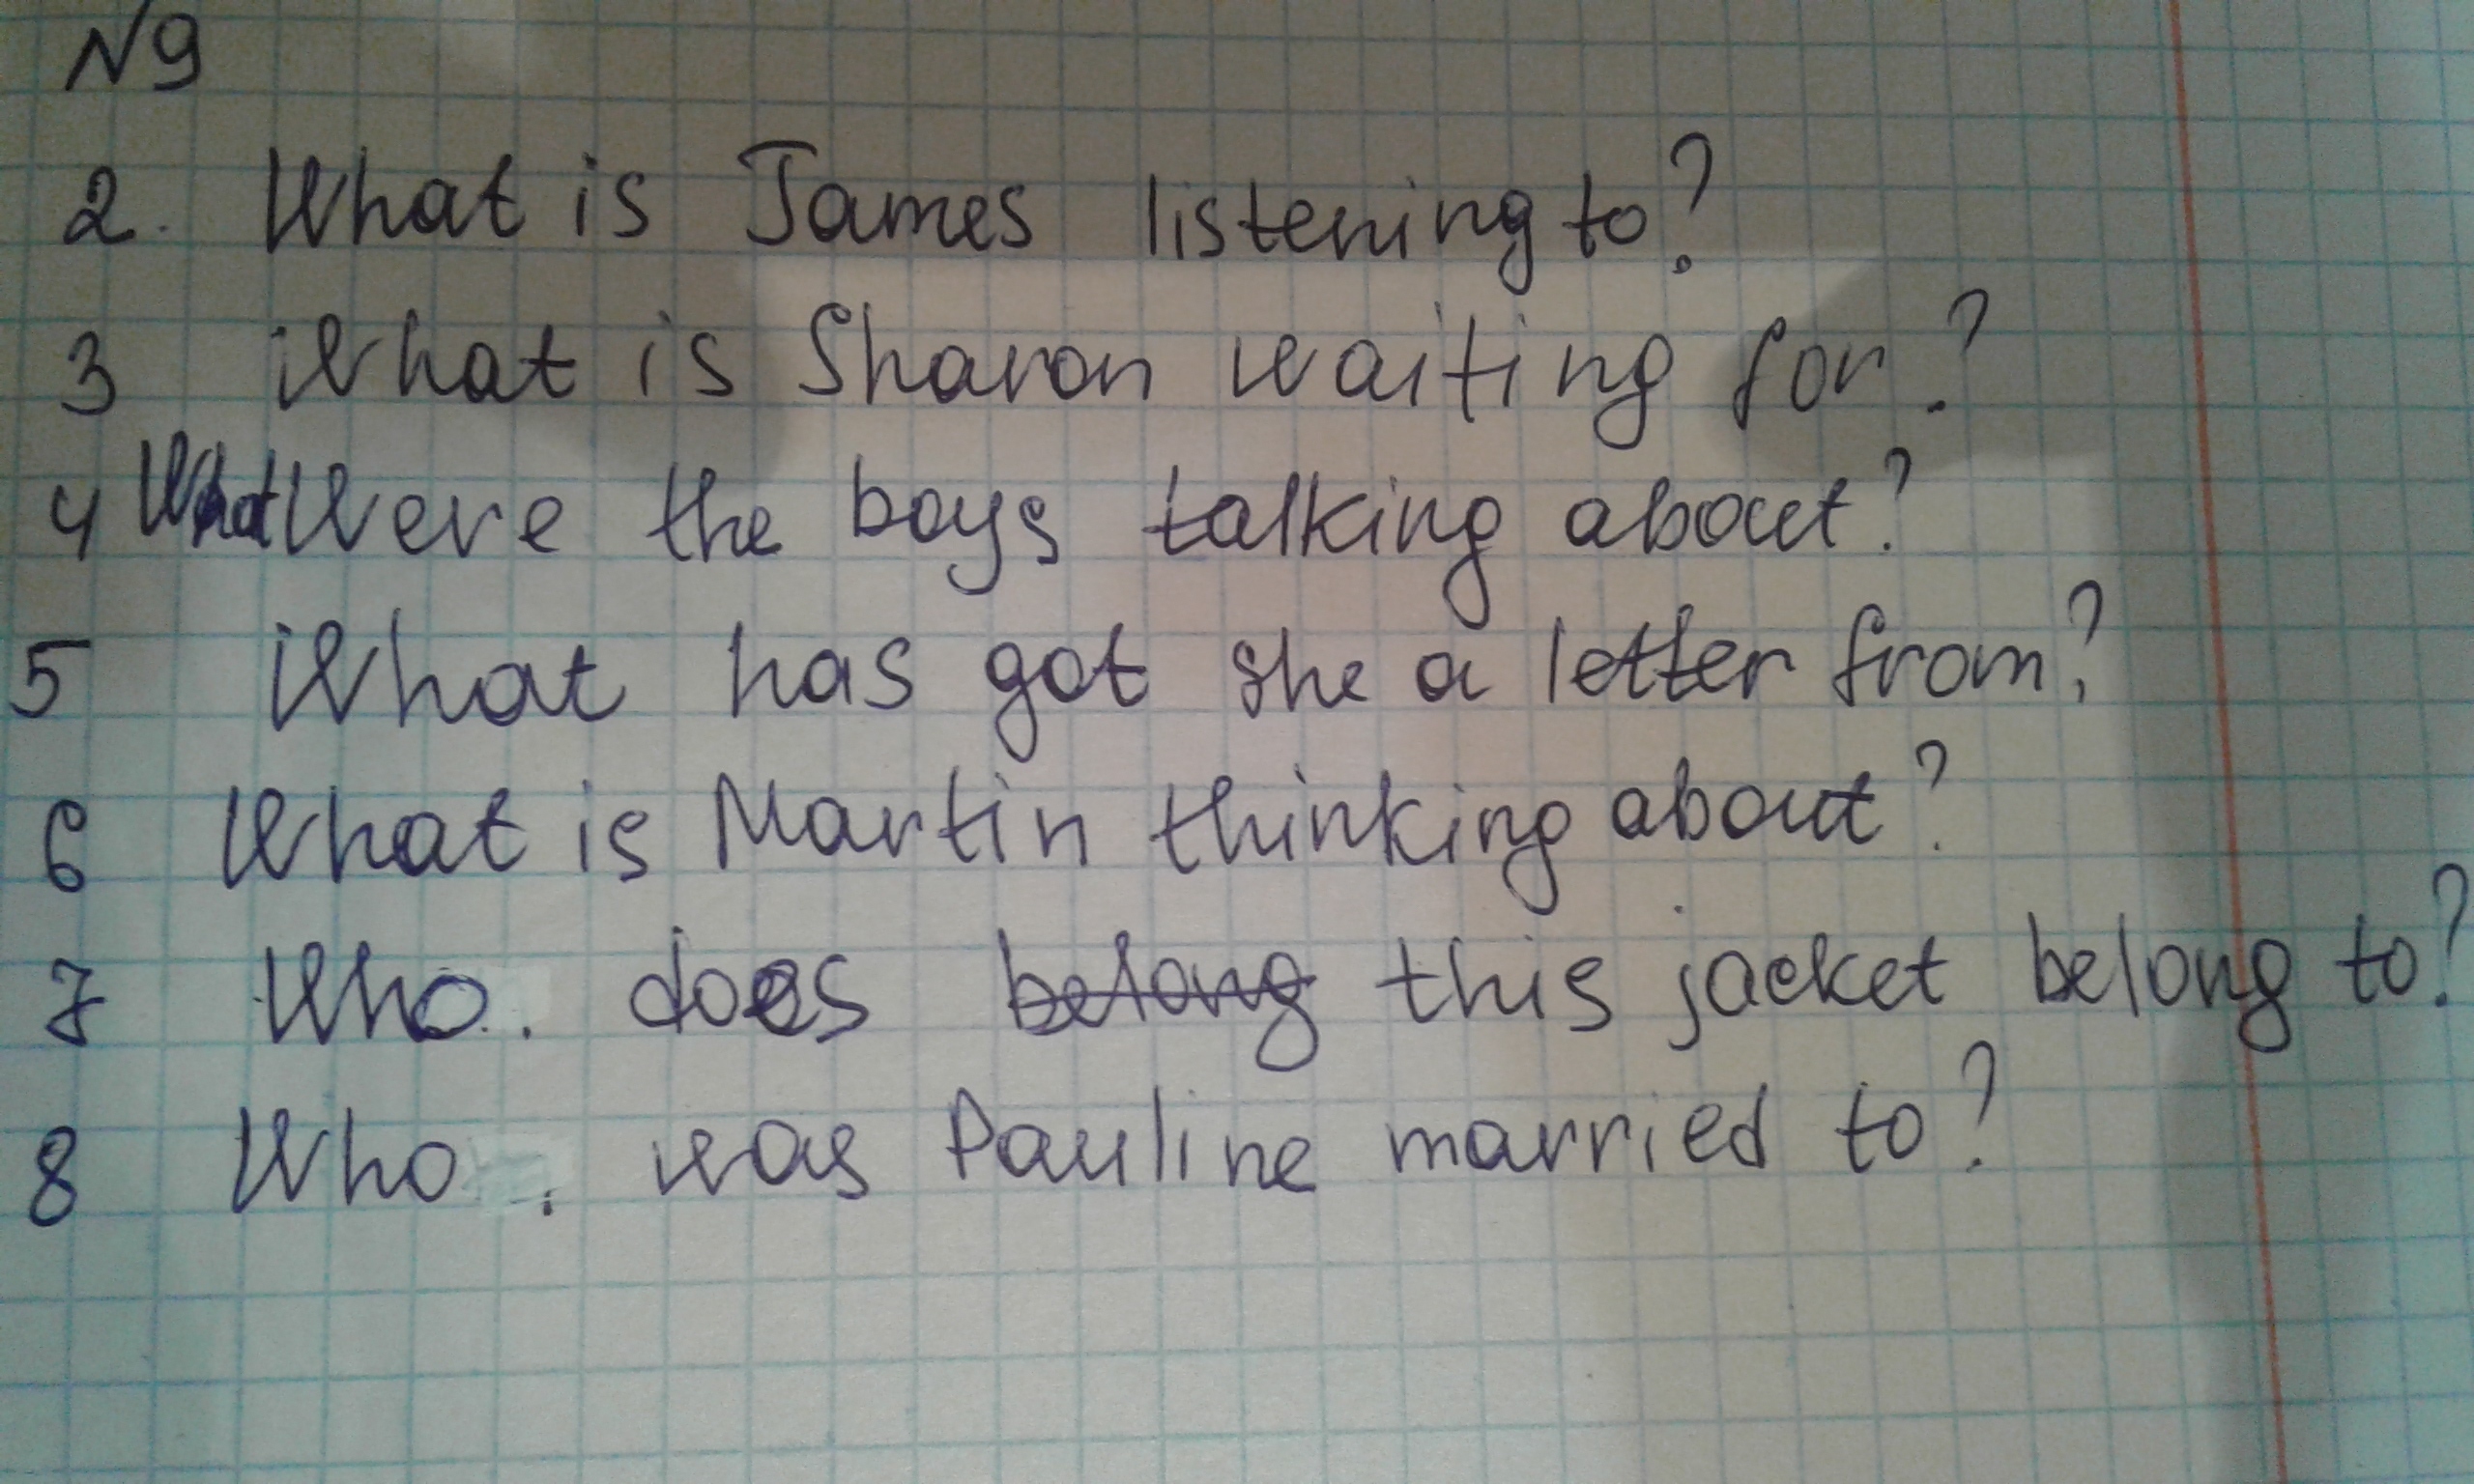 N9
2. What is James listening to?
3 What is Sharon waiting for?
4 What Were the boys talking about?
5 What has got she a letter from?
6 What is Martin thinking about?
7 Who. does belong this jacket belong to?
8 Who . was Pauline married to?